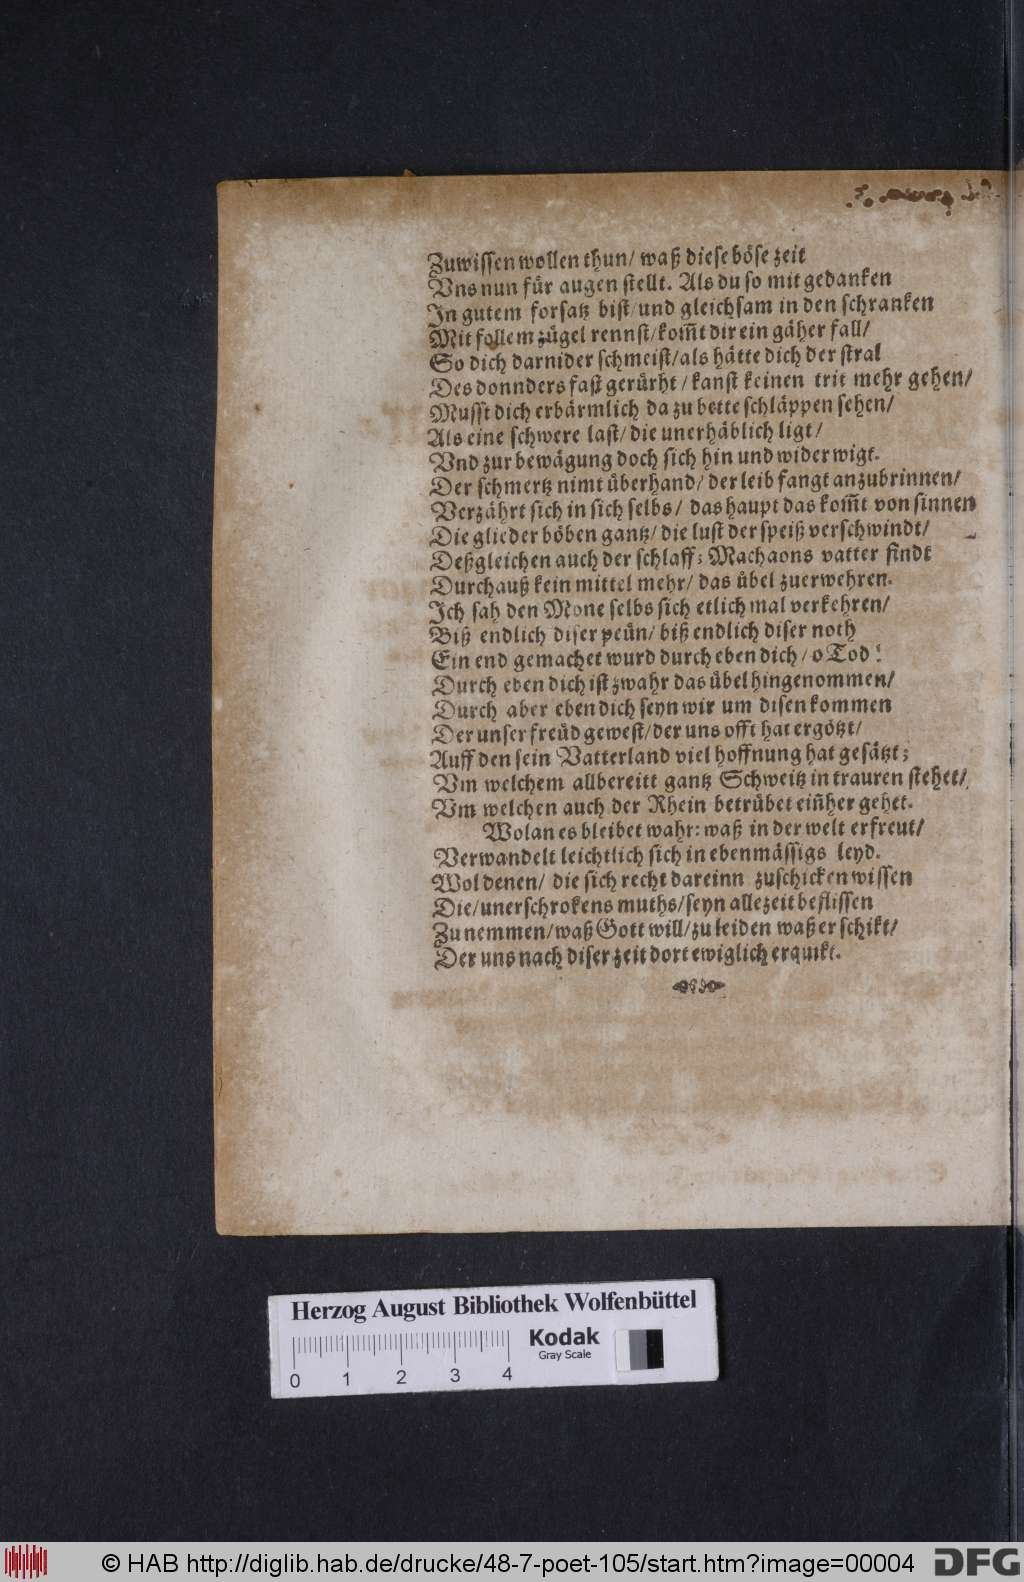 Zuwissen wollen thun/ waß diese böse zeit
Vns nun für augen stellt. Als du so mit gedanken
In gutem forsatz bist/ und gleichsam in den schranken
Mit follem zügel rennst/ kom̃t dir ein gäher fall/
So dich darnider schmeist/ als hätte dich der stral
Des donnders fast gerürht / kanst keinen trit mehr gehen/
Musst dich erbärmlich da zu bette schläppen sehen/
Als eine schwere last/ die unerhäblich ligt/
Vnd zur bewägung doch sich hin und wider wigt.
Der schmertz nimt überhand/ der leib fangt anzubrinnen/
Verzährt sich in sich selbs/ das haupt das kom̃t von sinnen
Die glieder böben gantz/ die lust der speiß verschwindt/
Deßgleichen auch der schlaff; Machaons vatter findt
Durchauß kein mittel mehr/ das übel zuerwehren.
Ich sah den Mone selbs sich etlich mal verkehren/
Biß endlich diser peün/ biß endlich diser noth
Ein end gemachet wurd durch eben dich/ o Tod!
Durch eben dich ist zwahr das übel hingenommen/
Durch aber eben dich seyn wir um disen kommen
Der unser freüd gewest/ der uns offt hat ergötzt/
Auff den sein Vatterland viel hoffnung hat gesätzt;
Vm welchem allbereitt gantz Schweitz in trauren stehet/
Vm welchen auch der Rhein betrübet eiñher gehet.
Wolan es bleibet wahr: waß in der welt erfreut/
Verwandelt leichtlich sich in ebenmässigs leyd.
Wol denen/ die sich recht dareinn zuschicken wissen
Die/ unerschrokens muths/ seyn allezeit beflissen
Zu nemmen/ waß Gott will/ zu leiden waß er schikt/
Der uns nach diser zeit dort ewiglich erquikt.
Herzog August Bibliothek Wolfenbüttel
Kodak
Gray Scale
0 1 2 3 4
© HAB http://diglib.hab.de/drucke/48-7-poet-105/start.htm?image=00004
DFG